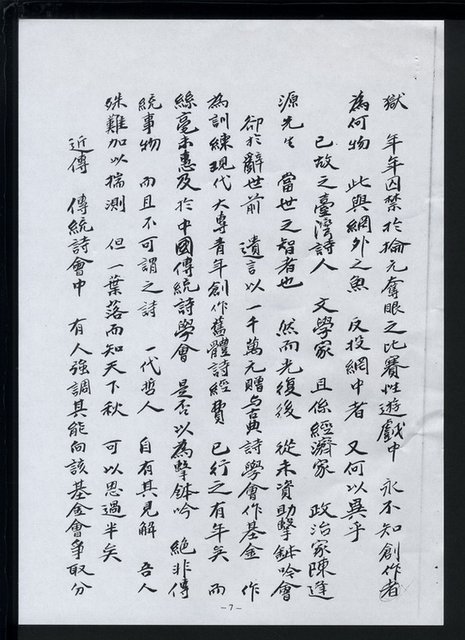 獄　年年囚禁於掄元奪眼之比賽性遊戲中　永不知創作者
為何物　此與網外之魚　反投網中者　又何以異乎
已故之臺灣詩人　文學家　且係經濟家　政治家陳逢
源先生　當世之智者也　然而光復後　從未資助擊缽吟會
卻於辭世前　遺言以一千萬元贈与古典詩學會作基金　作
為訓練現代大專青年創作舊體詩經費　已行之有年矣　而
絲毫未惠及於中國傳統詩學會　是否以為擊缽吟　絕非傳
統事物　而且不可謂之詩　一代哲人　自有其見解　吾人
殊難加以揣測　但一葉落而知天下秋　可以思過半矣
近傳　傳統詩會中　有人強調其能向該基金會爭取分
-7-